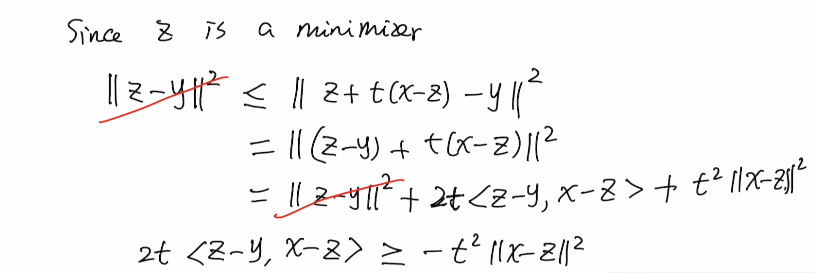 Since z is a minimizer
||z-y||² ≤ || z+t(x-z)-y ||²
= ||(z-y)+t(x-z)||²
= ||z-y||²+2t<z-y, x-z>+t²||x-z||²
2t <z-y, x-z> ≥ -t²||x-z||²